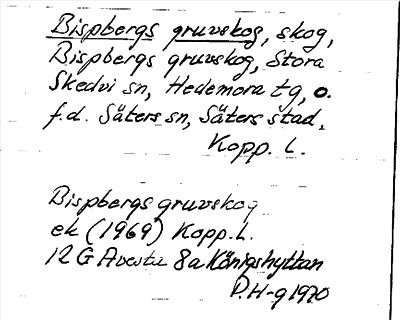 Bispbergs gruvskog, skog,
Bispbergs gruvskog, Stora
Skedvi sn, Hedemora tg, o.
f.d. Säters sn, Säters stad,
Kopp. l.
Bispbergs gruvskog
ek (1969) Kopp. l.
12 G Avesta 8a Königshyttan
P.H-g 1970